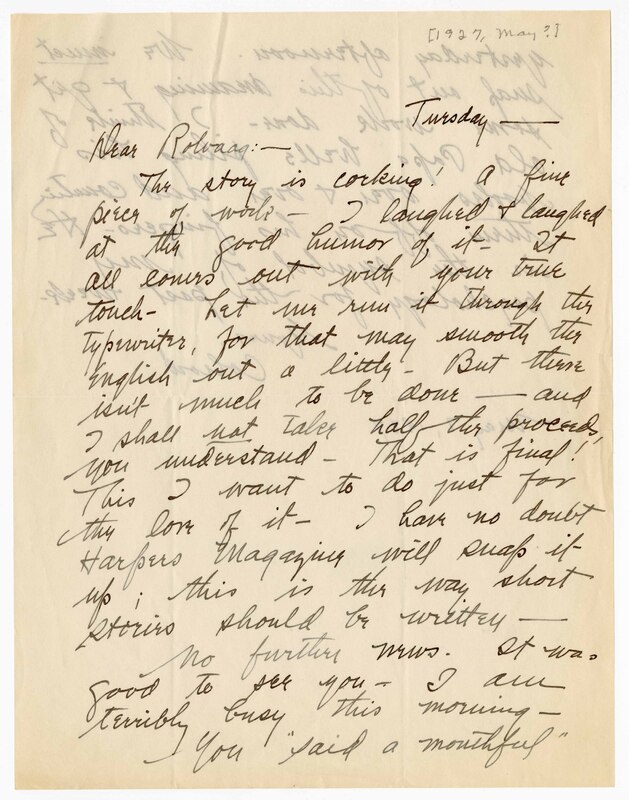 [1927, May?]
Tuesday —
Dear Rolvaag:—
The story is corking! A fine
piece of work — I laughed & laughed
at the good humor of it — It
all comes out with your true
touch — Let me run it through the
typewriter, for that may smooth the
English out a little — But there
isn't much to be done — and
I shall not take half the proceeds,
you understand — That is final!
This I want to do just for
the love of it — I have no doubt
Harpers Magazine will snap it
up; this is the way short
stories should be written —
No further news. It was
good to see you — I am
terribly busy this morning —
You "said a mouthful"